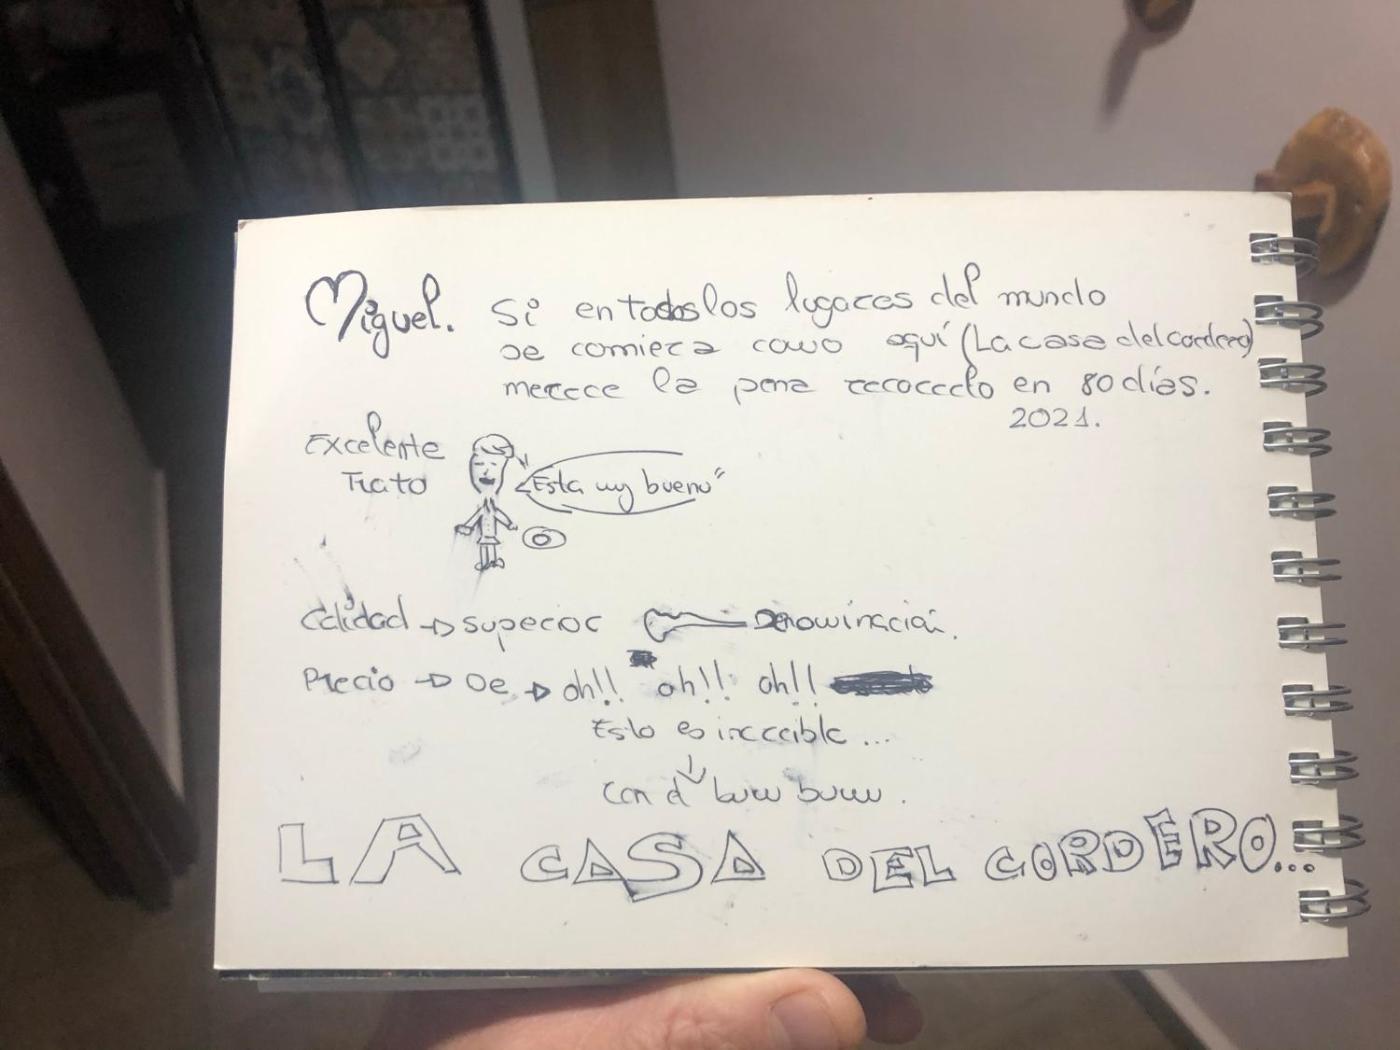 Miguel. Si en todos los lugares del mundo
se comiera como aquí (La casa del cordero)
merece la pena recorrerlo en 80 días.
2021.
Excelente
Trato
"Esta muy bueno"
Calidad → superior Denominación.
Precio → De → oh!! oh!! oh!!
Esto es increible ...
↓
Con el buu buuu.
LA CASA DEL CORDERO...